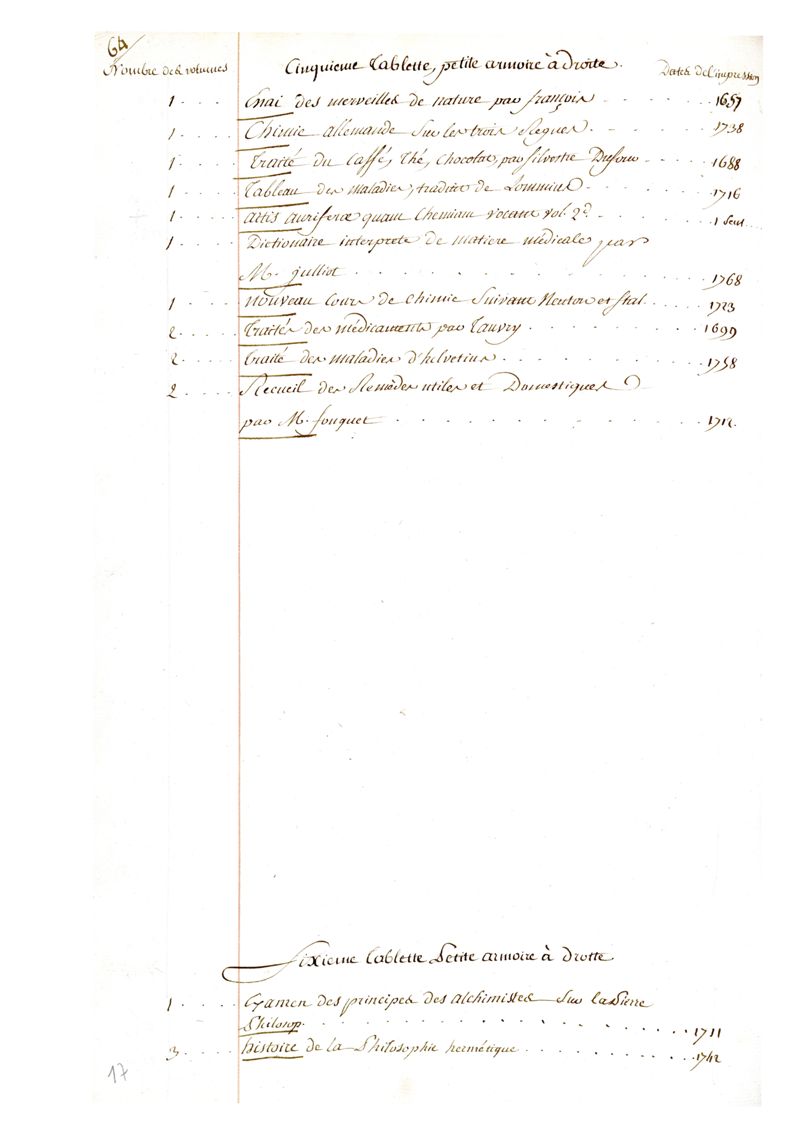 64
Nombre des volumes Cinquieme Tablette, petite armoire à droite. Dates de l'impression
1 . . . Essai des merveilles de nature par françois . . . . . 1657
1 . . . . Chimie allemande Sur les trois Regnes . . . . . 1738
1 . . . . Traité du Caffé, Thé, Chocolat, par Silvestre Dufour . . . . 1688
1 . . . . Tableau des maladies, traduit de Lommius . . . . . 1716
1 . . . . Artis auriferæ quam Chemiam vocant vol. 2d. . . . . . 1 Seul
1 . . . . Dictionaire interprete de matiere médicale par
M. julliot . . . . . . . . . . . 1768
1 . . . . nouveau Cours de Chimie Suivant Neuton et Stal . . . . 1723
2 . . . . Traités des médicaments par Tauvry . . . . . . . . 1699
2 . . . . Traité des maladies d'helvetius . . . . . . . . . 1758
2 . . . . Recueil des Remèdes utiles et Domestiques
par M. fouquet . . . . . . . . . . . 1712
Sixieme Tablette Petite armoire à droite
1 . . . . Examen des principes des alchimistes Sur la Pierre
Philosop. . . . . . . . . . . . . . . 1711
3 . . . . histoire de la Philosophie hermétique . . . . . . . . . 1742
17